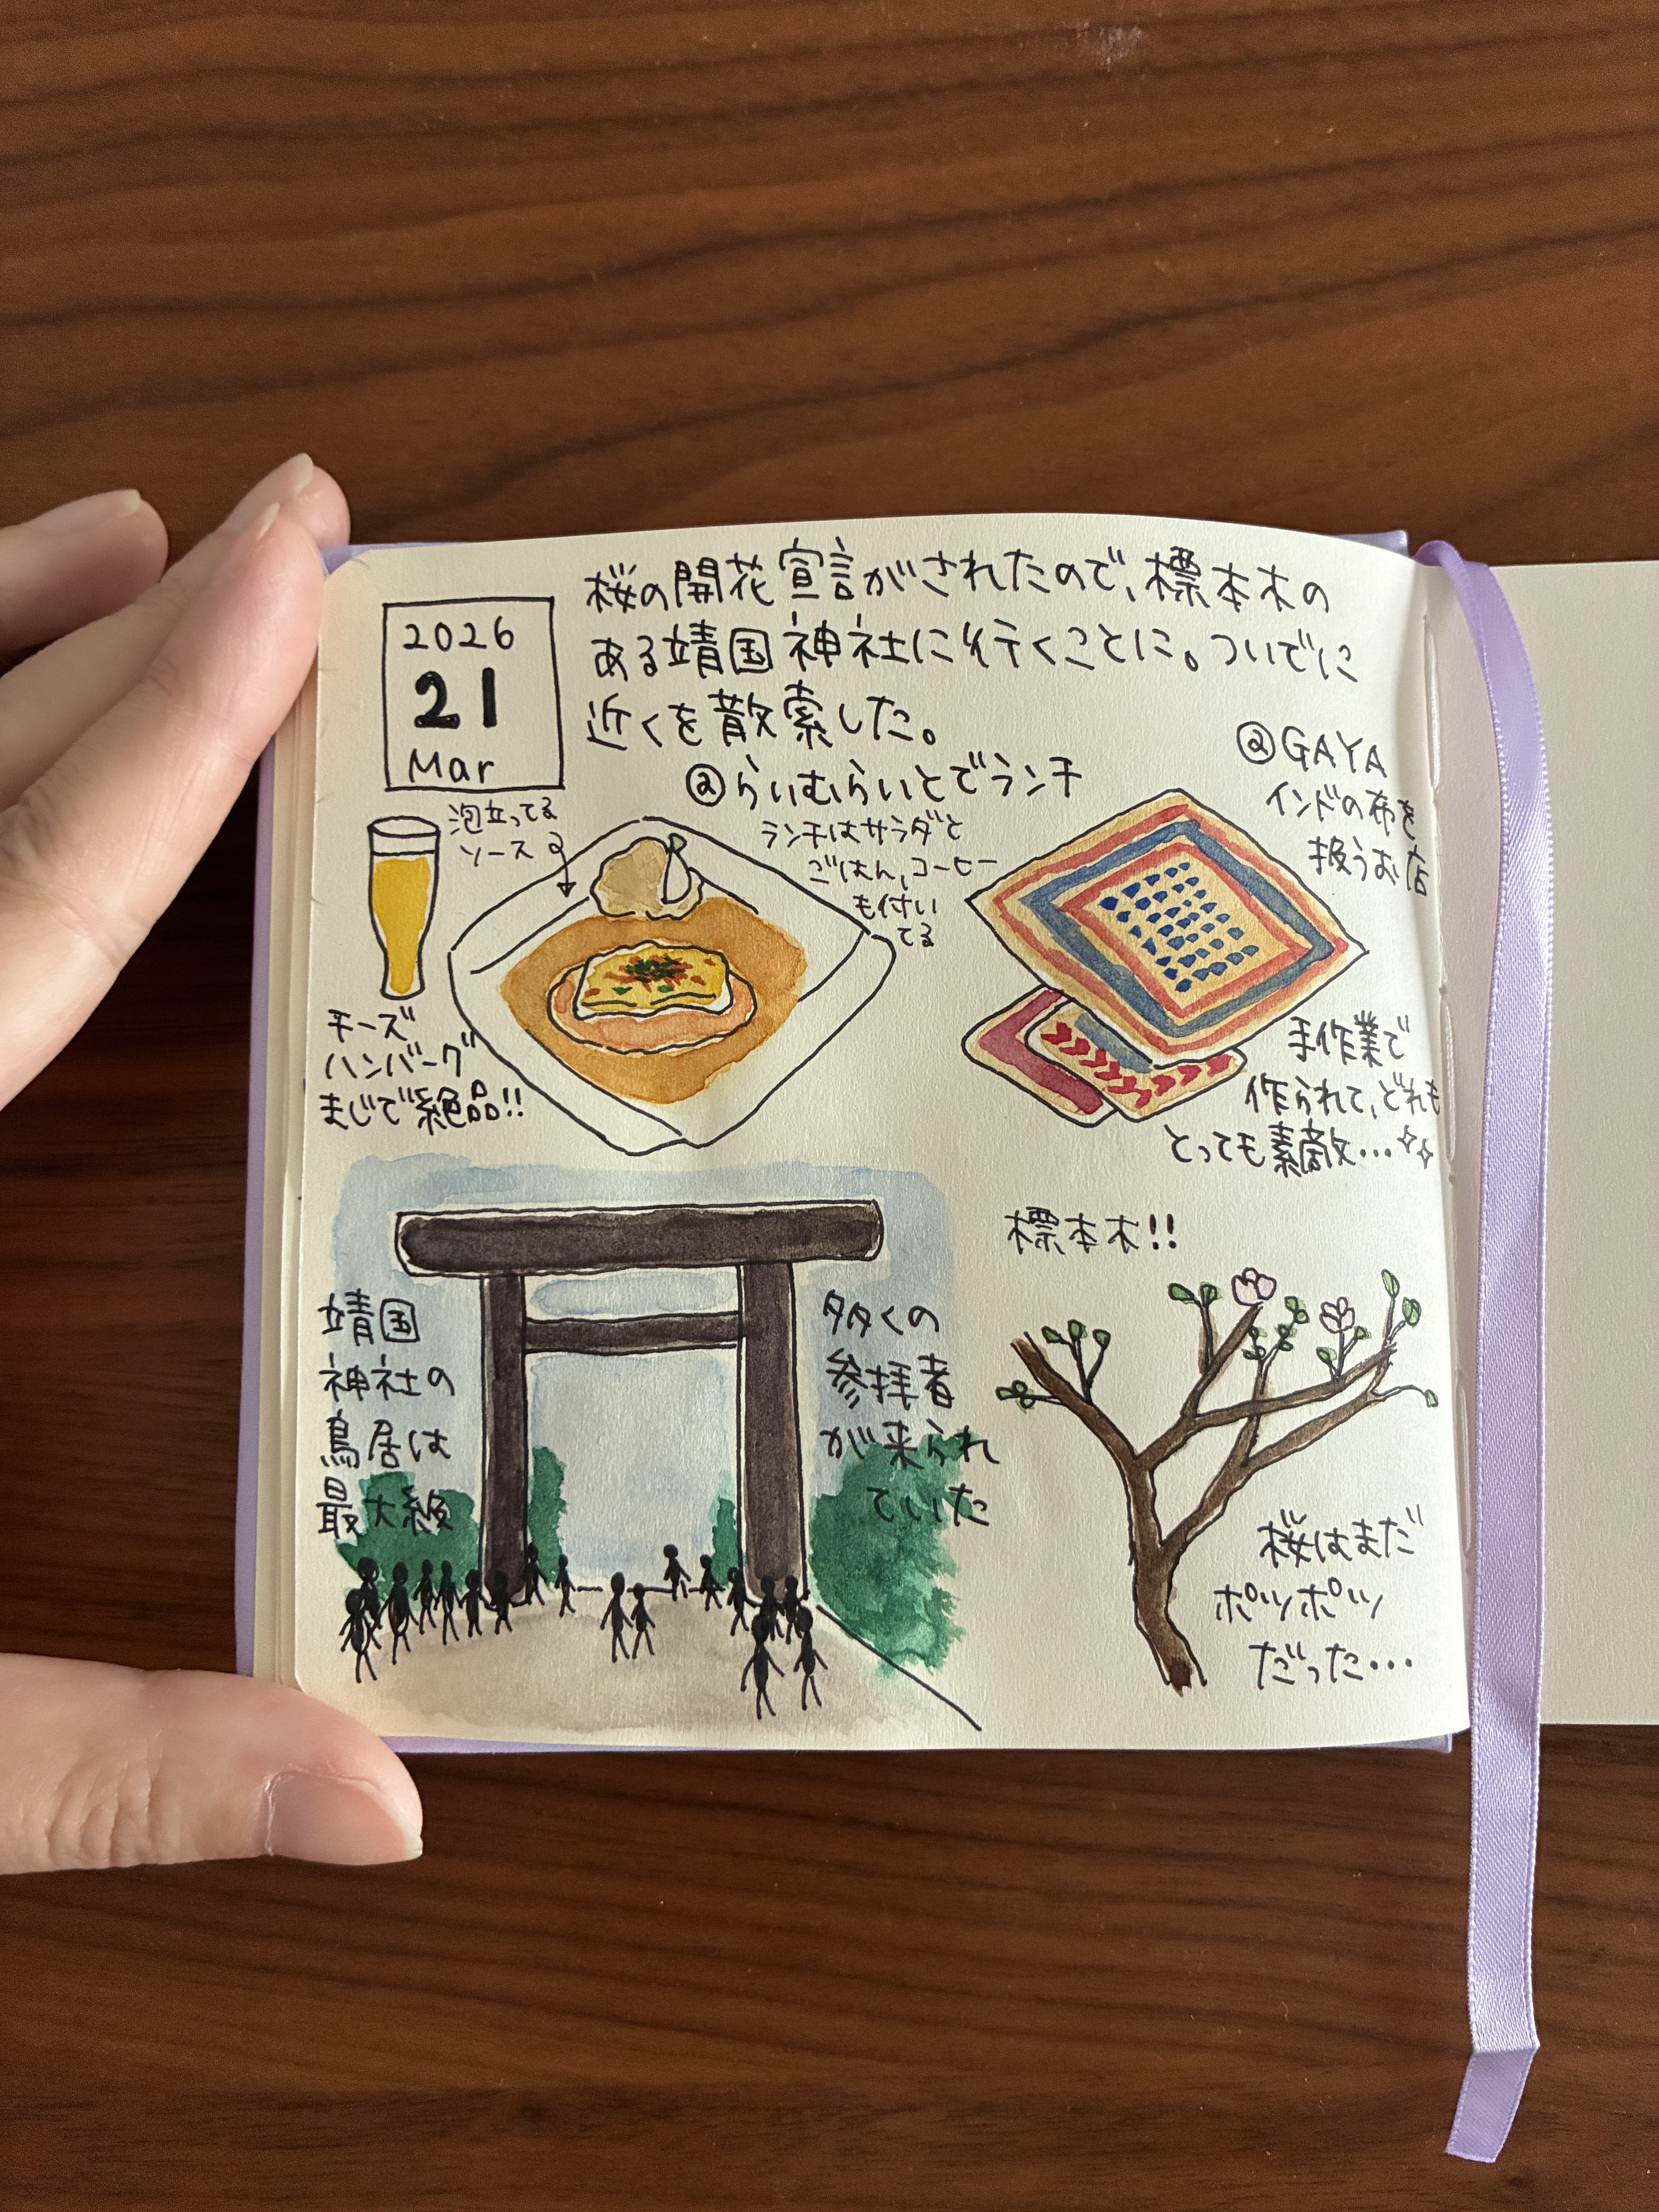 2026
21
Mar
桜の開花宣言がされたので、標本木の
ある靖国神社に行くことに。ついでに
近くを散索した。
@らいむらいとでランチ
ランチはサラダと
ごはん、コーヒー
も付い
てる
泡立ってる
ソース
チーズ
ハンバーグ
まじで絶品!!
@GAYA
インドの布を
扱うお店
手作業で
作られて、どれも
とっても素敵…
靖国
神社の
鳥居は
最大級
多くの
参拝者
が来られ
ていた
標本木!!
桜はまだ
ポツポツ
だった…